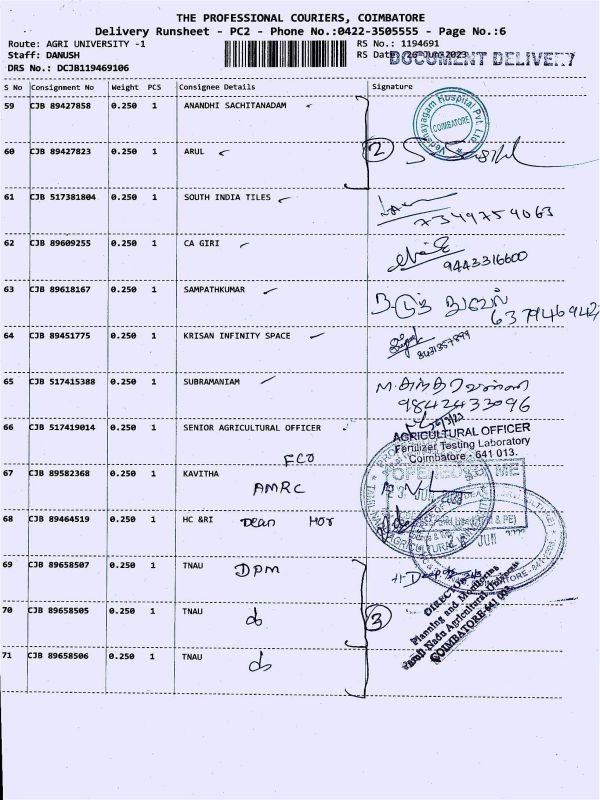 THE PROFESSIONAL COURIERS, COIMBATORE
Delivery Runsheet - PC2 - Phone No.:0422-3505555 - Page No.:6
Route: AGRI UNIVERSITY -1 RS No.: 1194691
Staff: DANUSH RS Date: 26-Jun-2023 DOCUMENT DELIVERY
DRS No.: DCJB119469106
S No Consignment No Weight PCS Consignee Details Signature
59 CJB 89427858 0.250 1 ANANDHI SACHITANADAM
Hospital Pvt. Ltd
COIMBATORE
60 CJB 89427823 0.250 1 ARUL 2
61 CJB 517381804 0.250 1 SOUTH INDIA TILES
7349759063
62 CJB 89609255 0.250 1 CA GIRI
9443316600
63 CJB 89618167 0.250 1 SAMPATHKUMAR
64 CJB 89451775 0.250 1 KRISAN INFINITY SPACE
65 CJB 517415388 0.250 1 SUBRAMANIAM
9842433096
66 CJB 517419014 0.250 1 SENIOR AGRICULTURAL OFFICER
AGRICULTURAL OFFICER
Fertilizer Testing Laboratory
Coimbatore - 641 013.
FCO
67 CJB 89582368 0.250 1 KAVITHA
OPENED BY ME
AMRC
68 CJB 89464519 0.250 1 HC &RI Dean Hor
69 CJB 89658507 0.250 1 TNAU DPM
DIRECTOR
Planning and Monitoring
Tamil Nadu Agricultural University
COIMBATORE-641 003
70 CJB 89658505 0.250 1 TNAU do 3
71 CJB 89658506 0.250 1 TNAU do